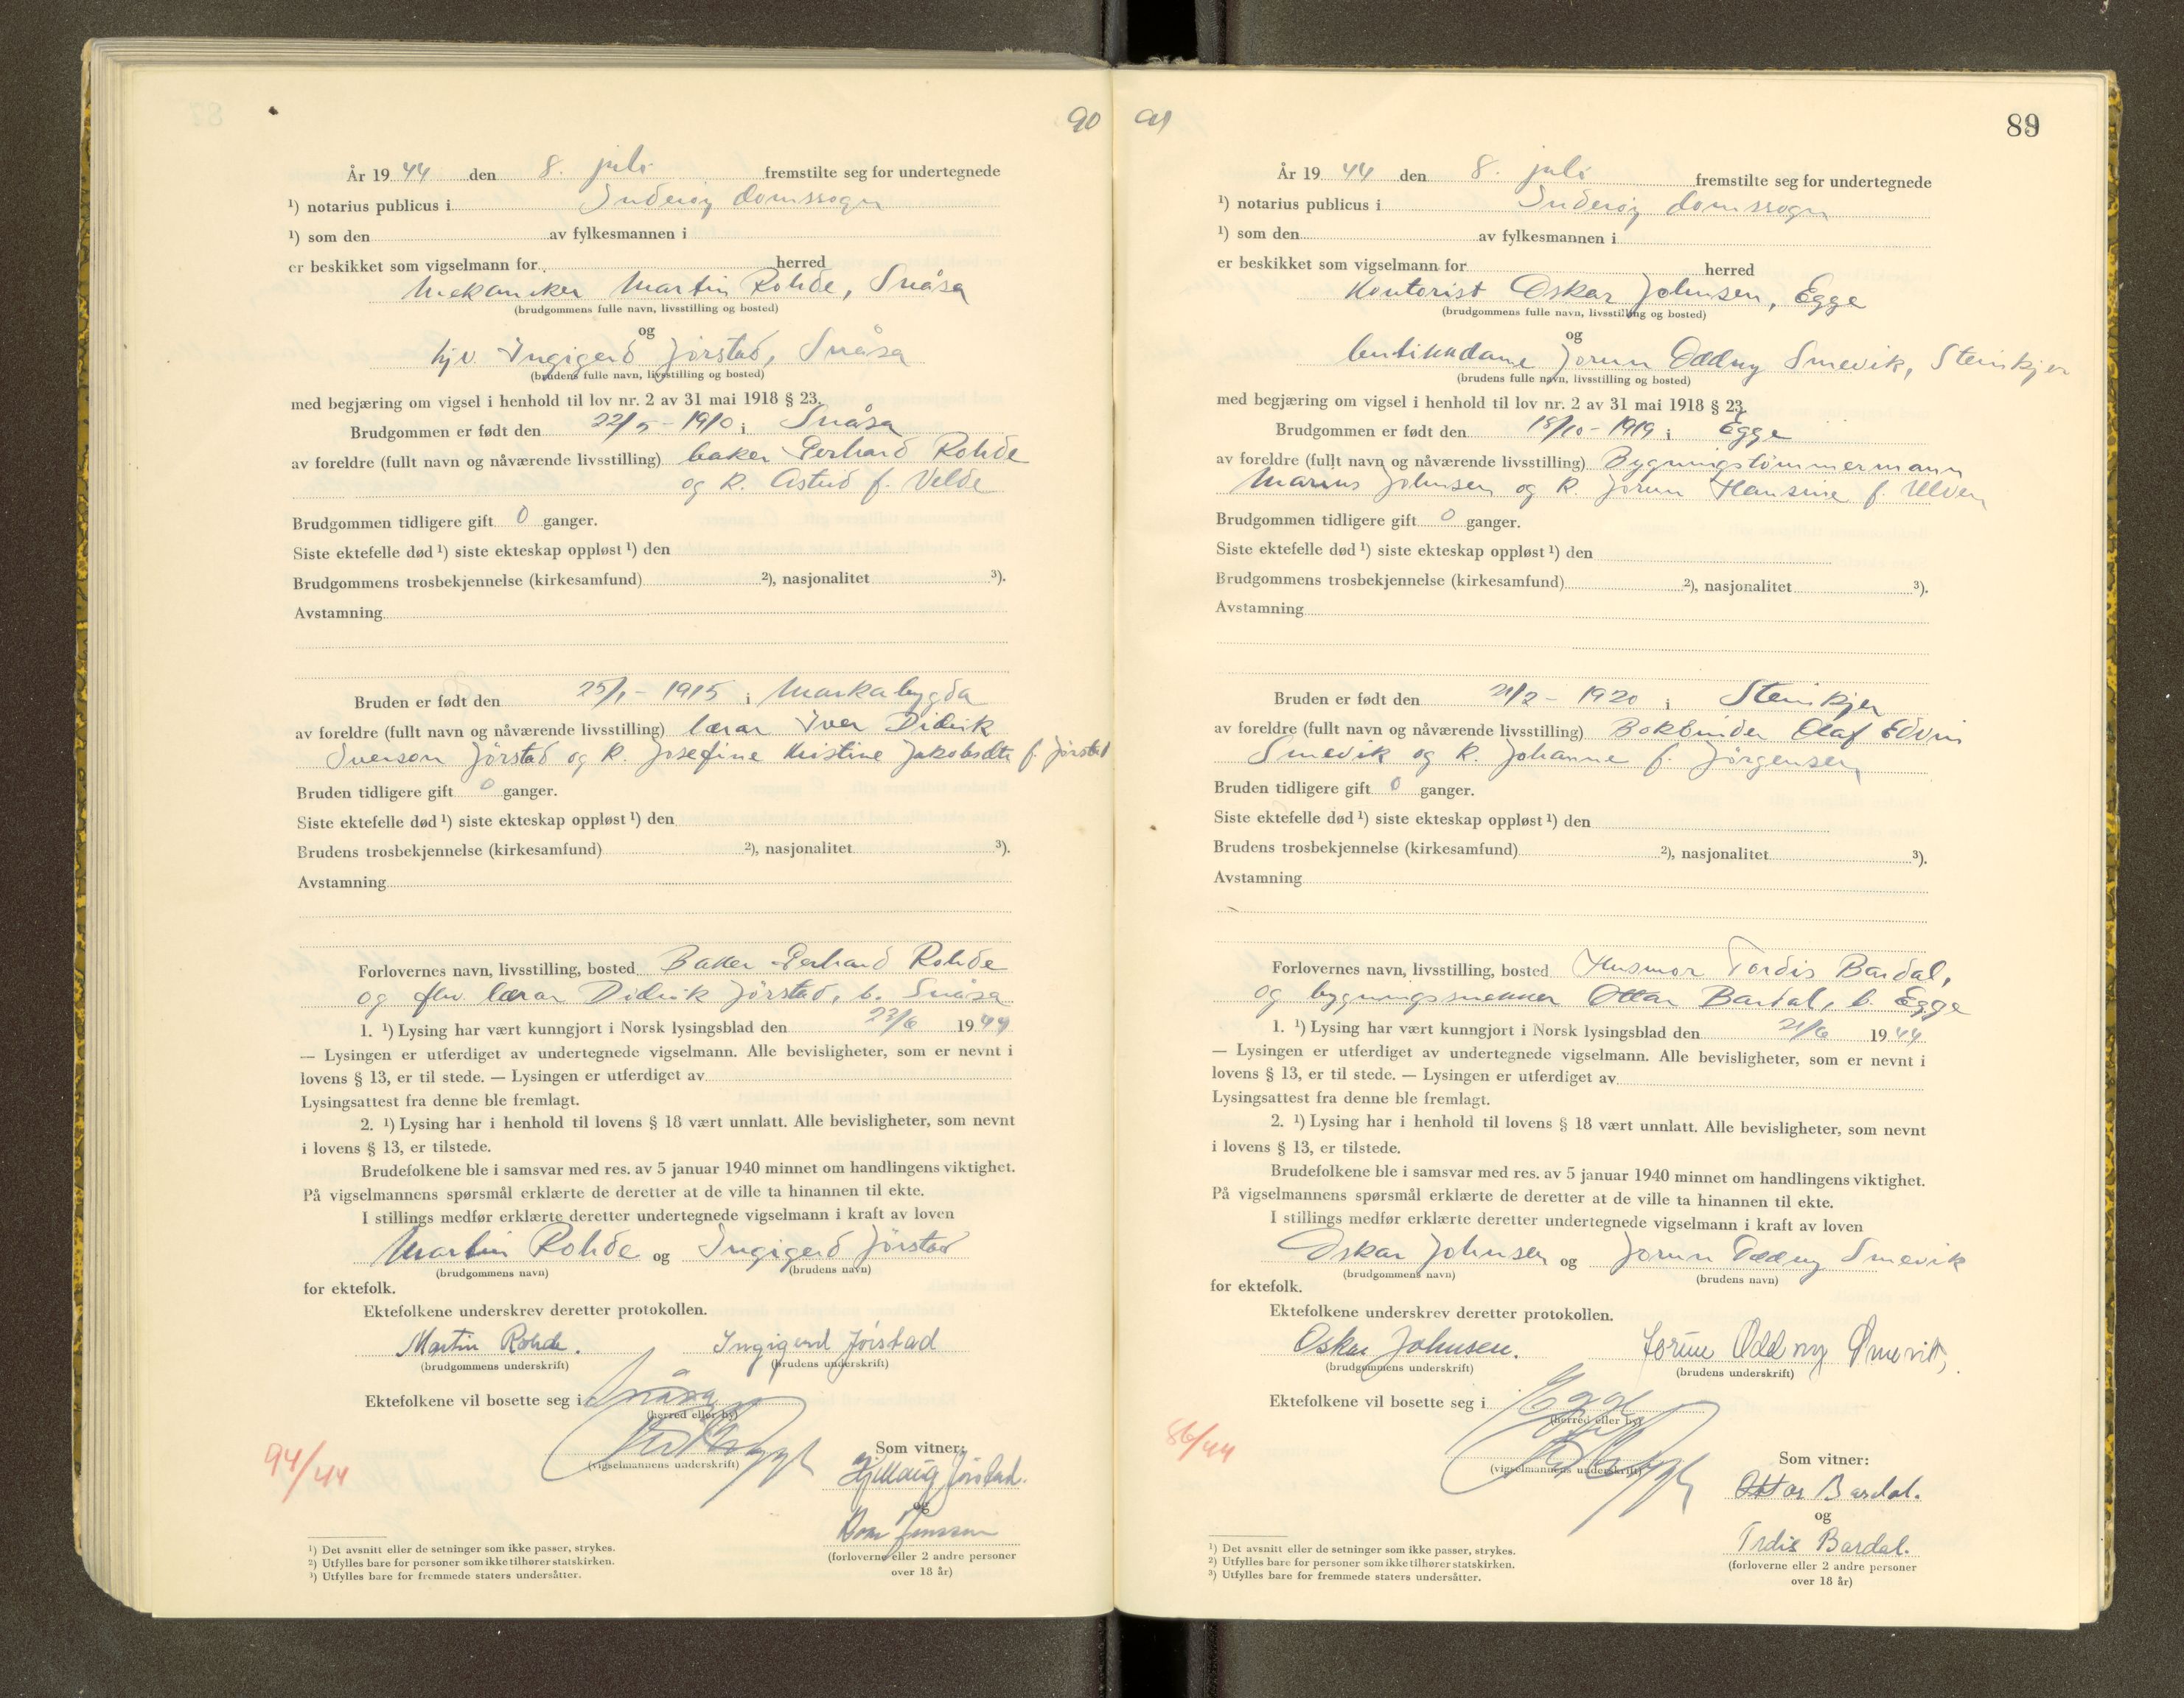 90
År 1944 den 8. juli fremstilte seg for undertegnede
¹) notarius publicus i Inderøy domssogn
¹) som den av fylkesmannen i
er beskikket som vigselmann for herred
Mekaniker Martin Rohde, Snåsa
(brudgommens fulle navn, livsstilling og bosted)
og
hjv Ingigerd Jørstad, Snåsa
(brudens fulle navn, livsstilling og bosted)
med begjæring om vigsel i henhold til lov nr. 2 av 31 mai 1918 § 23.
Brudgommen er født den 22/5 - 1910 i Snåsa
av foreldre (fullt navn og nåværende livsstilling) baker Gerhard Rohde
og k. Astrid f. Velde
Brudgommen tidligere gift 0 ganger.
Siste ektefelle død ¹) siste ekteskap oppløst ¹) den
Brudgommens trosbekjennelse (kirkesamfund) ²), nasjonalitet ³).
Avstamning
Bruden er født den 25/1 - 1915 i Markabygda
av foreldre (fullt navn og nåværende livsstilling) lærar Iver Didrik
Iverson Jørstad og k. Josefine Kristine Jakobsdtr f. Jørstad
Bruden tidligere gift 0 ganger.
Siste ektefelle død ¹) siste ekteskap oppløst ¹) den
Brudens trosbekjennelse (kirkesamfund) ²), nasjonalitet ³).
Avstamning
Forlovernes navn, livsstilling, bosted Baker Gerhard Rohde
og fhv. lærar Didrik Jørstad, b. Snåsa
1. ¹) Lysing har vært kunngjort i Norsk lysingsblad den 23/6 1944
— Lysingen er utferdiget av undertegnede vigselmann. Alle bevisligheter, som er nevnt i
lovens § 13, er til stede. — Lysingen er utferdiget av
Lysingsattest fra denne ble fremlagt.
2. ¹) Lysing har i henhold til lovens § 18 vært unnlatt. Alle bevisligheter, som nevnt
i lovens § 13, er tilstede.
Brudefolkene ble i samsvar med res. av 5 januar 1940 minnet om handlingens viktighet.
På vigselmannens spørsmål erklærte de deretter at de ville ta hinannen til ekte.
I stillings medfør erklærte deretter undertegnede vigselmann i kraft av loven
Martin Rohde og Ingigerd Jørstad
(brudgommens navn) (brudens navn)
for ektefolk.
Ektefolkene underskrev deretter protokollen.
Martin Rohde. Ingigerd Jørstad
(brudgommens underskrift) (brudens underskrift)
Ektefolkene vil bosette seg i Snåsa
(herred eller by)
(vigselmannens underskrift)
94/44
Som vitner:
Jørstad.
og
Jenssen
(forloverne eller 2 andre personer
over 18 år)
¹) Det avsnitt eller de setninger som ikke passer, strykes.
²) Utfylles bare for personer som ikke tilhører statskirken.
³) Utfylles bare for fremmede staters undersåtter.
91
89
År 1944 den 8. juli fremstilte seg for undertegnede
¹) notarius publicus i Inderøy domssogn
¹) som den av fylkesmannen i
er beskikket som vigselmann for herred
Kontorist Oskar Johnsen, Egge
(brudgommens fulle navn, livsstilling og bosted)
og
butikkdame Jorun Oddny Smevik, Steinkjer
(brudens fulle navn, livsstilling og bosted)
med begjæring om vigsel i henhold til lov nr. 2 av 31 mai 1918 § 23.
Brudgommen er født den 18/10 - 1919 i Egge
av foreldre (fullt navn og nåværende livsstilling) Bygningstømmermann
Marius Johnsen og k. Jorun Hansine f. Ulven
Brudgommen tidligere gift 0 ganger.
Siste ektefelle død ¹) siste ekteskap oppløst ¹) den
Brudgommens trosbekjennelse (kirkesamfund) ²), nasjonalitet ³).
Avstamning
Bruden er født den 21/2 - 1920 i Steinkjer
av foreldre (fullt navn og nåværende livsstilling) Bokbinder Olaf Edvin
Smevik og k. Johanne f. Jørgensen
Bruden tidligere gift 0 ganger.
Siste ektefelle død ¹) siste ekteskap oppløst ¹) den
Brudens trosbekjennelse (kirkesamfund) ²), nasjonalitet ³).
Avstamning
Forlovernes navn, livsstilling, bosted Husmor Tordis Bardal,
og bygningssnekker Ottar Bardal, b. Egge
1. ¹) Lysing har vært kunngjort i Norsk lysingsblad den 21/6 1944
— Lysingen er utferdiget av undertegnede vigselmann. Alle bevisligheter, som er nevnt i
lovens § 13, er til stede. — Lysingen er utferdiget av
Lysingsattest fra denne ble fremlagt.
2. ¹) Lysing har i henhold til lovens § 18 vært unnlatt. Alle bevisligheter, som nevnt
i lovens § 13, er tilstede.
Brudefolkene ble i samsvar med res. av 5 januar 1940 minnet om handlingens viktighet.
På vigselmannens spørsmål erklærte de deretter at de ville ta hinannen til ekte.
I stillings medfør erklærte deretter undertegnede vigselmann i kraft av loven
Oskar Johnsen og Jorun Oddny Smevik
(brudgommens navn) (brudens navn)
for ektefolk.
Ektefolkene underskrev deretter protokollen.
Oskar Johnsen. Jorun Oddny Smevik,
(brudgommens underskrift) (brudens underskrift)
Ektefolkene vil bosette seg i Egge
(herred eller by)
(vigselmannens underskrift)
86/44
Som vitner:
Ottar Bardal.
og
Trdis Bardal.
(forloverne eller 2 andre personer
over 18 år)
¹) Det avsnitt eller de setninger som ikke passer, strykes.
²) Utfylles bare for personer som ikke tilhører statskirken.
³) Utfylles bare for fremmede staters undersåtter.